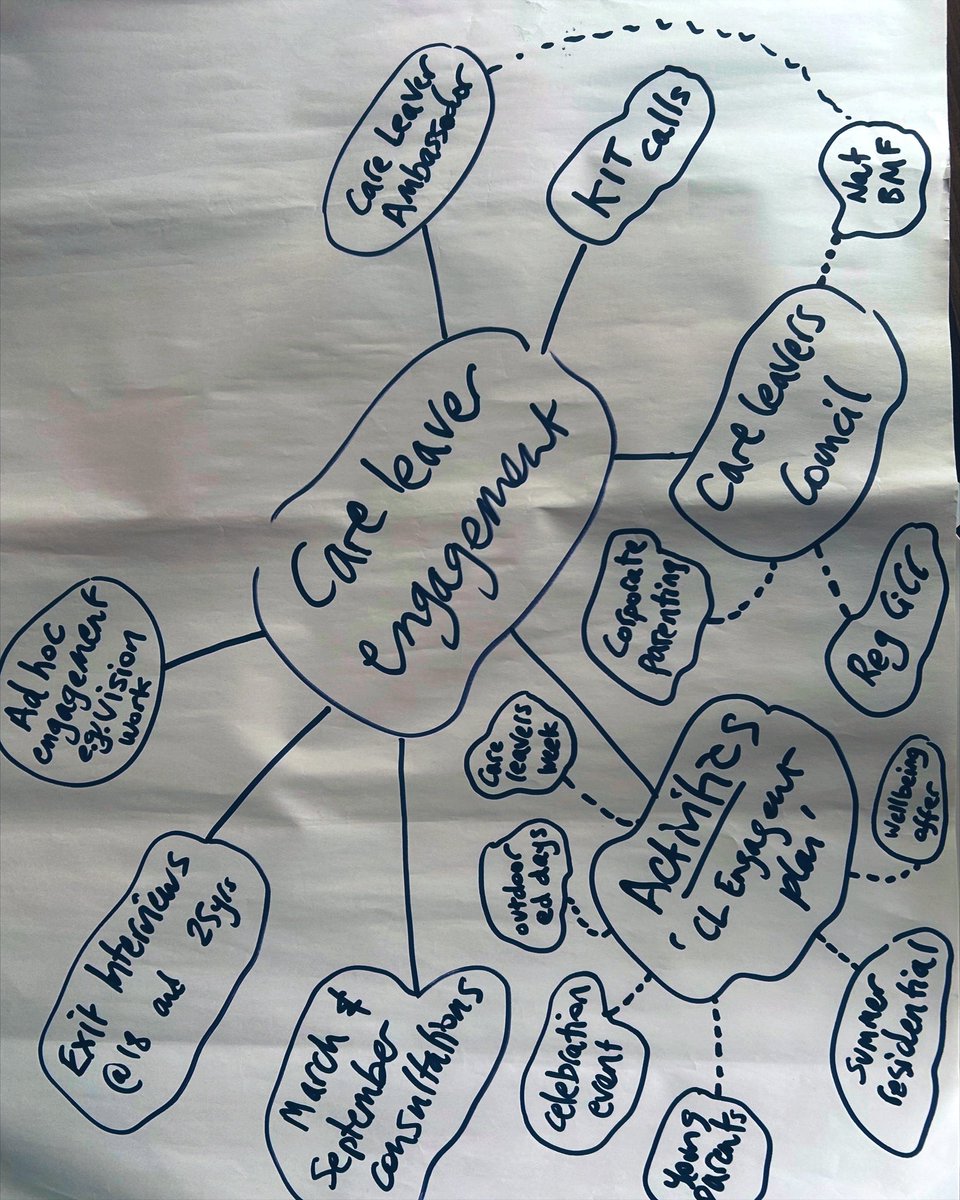 Care leaver
engagement
Care Leaver
Ambassador
KIT
calls
Nat
BMF
Care leavers
Council
Corporate
Parenting
Reg CiCC
Activities
'CL Engagent
plan'
Care
leavers
week
outdoor
ed days
Celebration
event
Young
Parents
Summer
residential
Wellbeing
offer
March &
September
consultations
Exit Interviews
@18 and 25yrs
Ad hoc
engagement
e.g. Vision
work